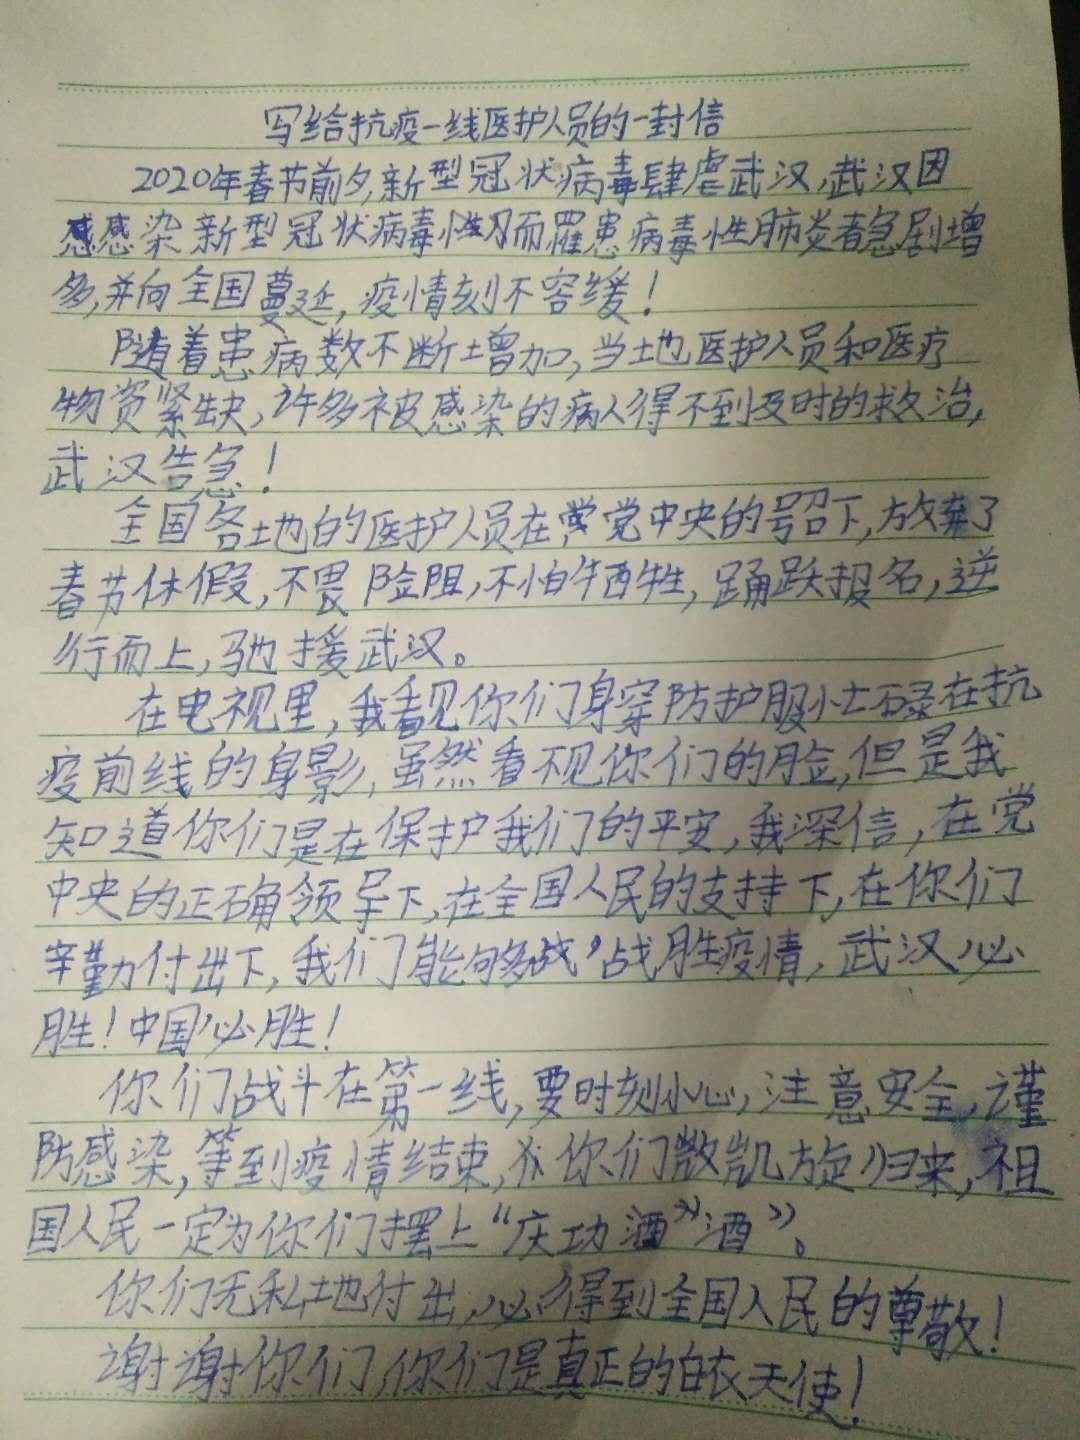 写给抗疫一线医护人员的一封信
2020年春节前夕,新型冠状病毒肆虐武汉,武汉因
感感染新型冠状病毒性而罹患病毒性肺炎者急剧增
多,并向全国蔓延,疫情刻不容缓!
随着患病数不断增加,当地医护人员和医疗
物资紧缺,许多被感染的病人得不到及时的救治,
武汉告急!
全国各地的医护人员在党中央的号召下,放弃了
春节休假,不畏险阻,不怕牺牲,踊跃报名,逆
行而上,驰援武汉。
在电视里,我看见你们身穿防护服忙碌在抗
疫前线的身影,虽然看不见你们的脸,但是我
知道你们是在保护我们的平安,我深信,在党
中央的正确领导下,在全国人民的支持下,在你们
辛勤付出下,我们能够战战胜疫情,武汉必
胜!中国必胜!
你们战斗在第一线,要时刻小心,注意安全,谨
防感染,等到疫情结束,你们凯旋归来,祖
国人民一定为你们摆上“庆功酒”酒”。
你们无私地付出,必得到全国人民的尊敬!
谢谢你们,你们是真正的白衣天使!